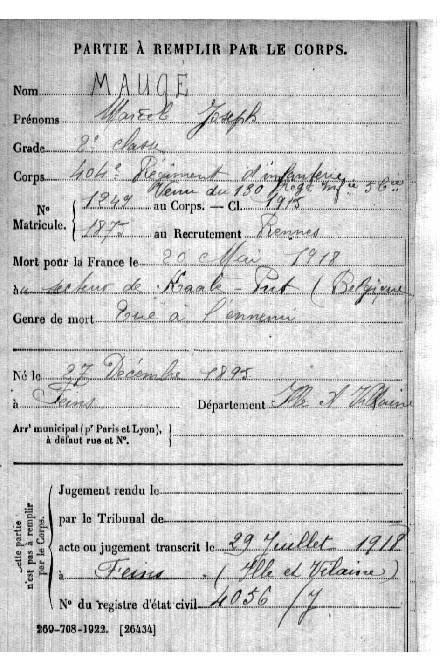 PARTIE À REMPLIR PAR LE CORPS.
Nom MAUGÉ
Prénoms Marcel Joseph
Grade 2e classe
Corps 404e Régiment d'infanterie
Venu du 130 Reg. Inf.ie 5 Cie
N° 1249 au Corps. — Cl. 1915
Matricule. 1875 au Recrutement Rennes
Mort pour la France le 20 Mai 1918
au secteur de Kraale - Put (Belgique
Genre de mort Tué à l'ennemi
Né le 27 Décembre 1895
à Feins Département Ille & Vilaine
Arrt municipal (pr Paris et Lyon),
à défaut rue et N°.
Cette partie
n'est pas à remplir
par le Corps.
Jugement rendu le
par le Tribunal de
acte ou jugement transcrit le 29 Juillet 1918
à Feins (Ille et Vilaine)
N° du registre d'état civil 4056/J
269-708-1922. [26434]